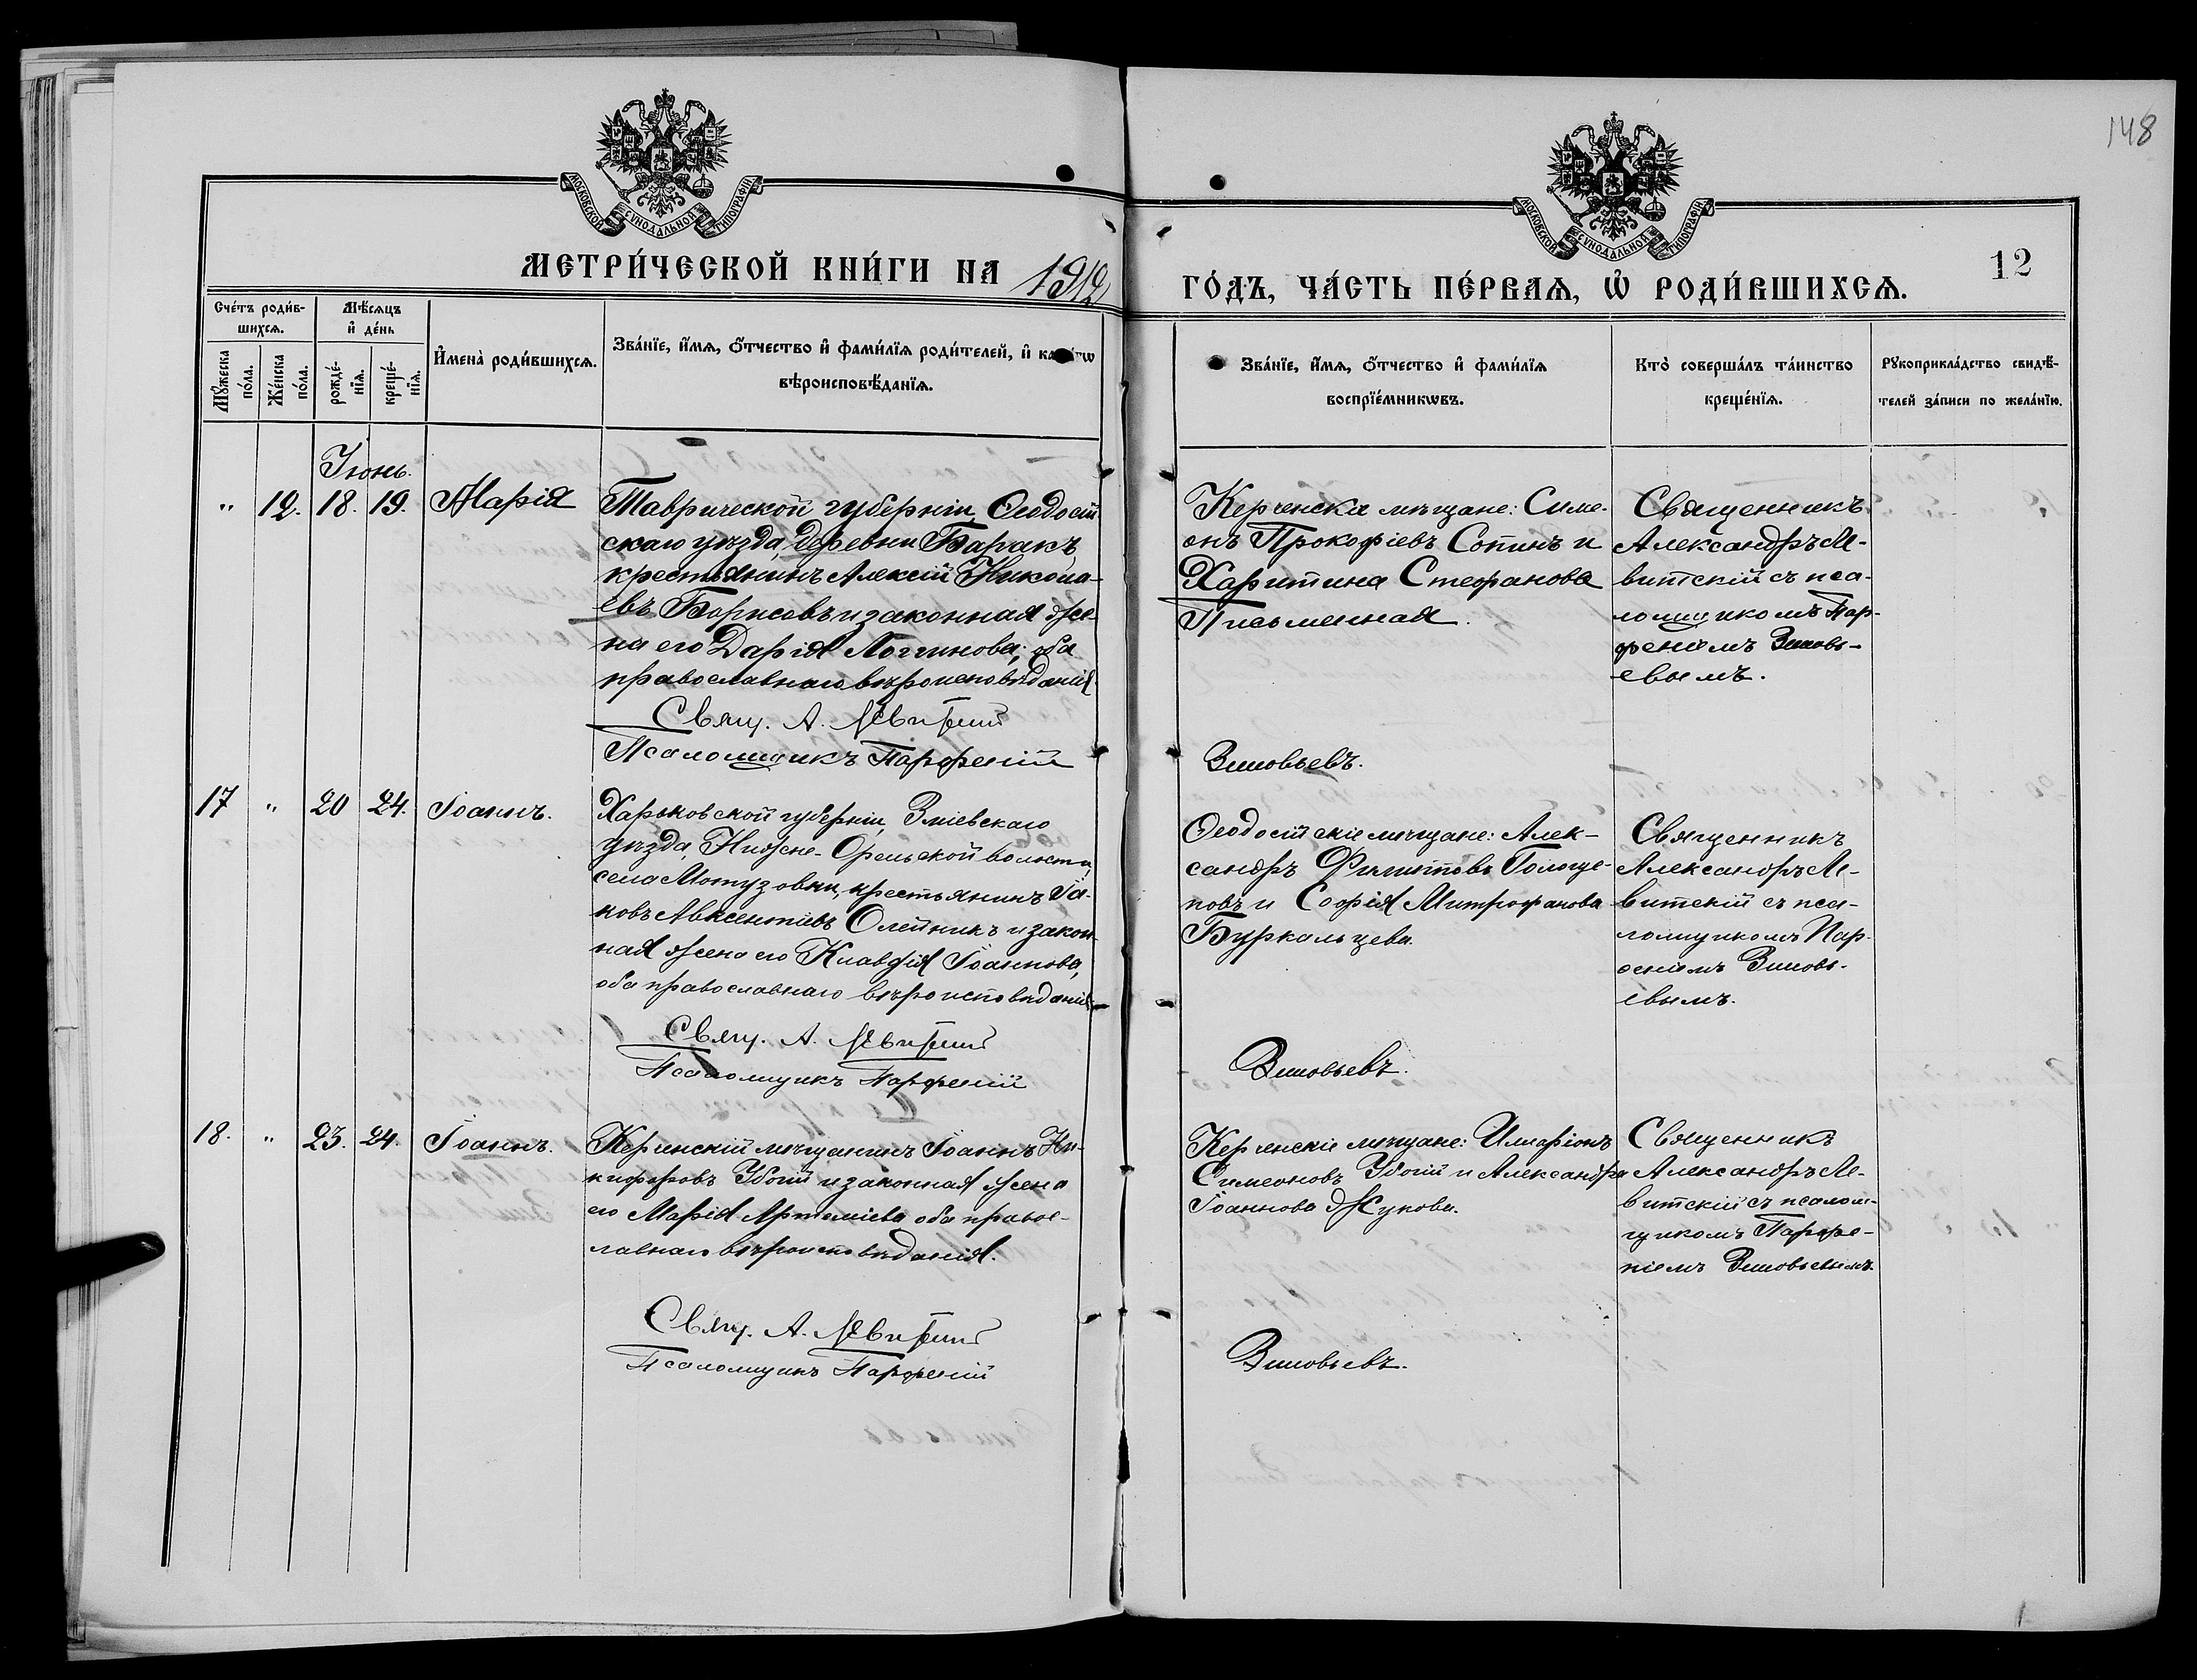 148
МОСКОВСКОЙ СѴНОДАЛЬНОЙ ТИПОГРАФІИ.
МОСКОВСКОЙ СѴНОДАЛЬНОЙ ТИПОГРАФІИ.
МЕТРИ́ЧЕСКОЙ КНИ́ГИ НА 1912
ГО́ДЪ, ЧА́СТЬ ПЕ́РВАѦ, Ѽ РОДИ́ВШИХСѦ.
12
Сче́тъ роди́в-
шихсѧ.
Мꙋ́жеска
по́ла.
Же́нска
по́ла.
Мѣ́сѧцъ
и҆ де́нь
рожде́-
нїѧ.
креще́-
нїѧ.
И҆мена̀ роди́вшихсѧ.
Зва́нїе, и҆́мѧ, ѻ҆́тчество и҆ фами́лїѧ роди́телей, и҆ како́гѡ
вѣроисповѣ́данїѧ.
Зва́нїе, и҆́мѧ, ѻ҆́тчество и҆ фами́лїѧ
воспрїе́мникѡвъ.
Кто̀ соверша́лъ та́инство
креще́нїѧ.
Рꙋкоприкла́дство свидѣ́-
телей за́писи по жела́нїю.
Іюнь.
" 12. 18. 19. Марія
Таврической губерніи, Ѳеодосій
скаго уѣзда, деревни Баракъ,
крестьянинъ Алексій Никола-
евъ Борисовъ и законная же-
на его Дарія Логгинова; оба
православнаго вѣроисповѣданія.
Свящ. А. Левитскій
Псаломщикъ Парфеній
Керченскіе мѣщане: Симе-
онъ Прокофіевъ Сопинъ и
Харитина Стефанова
Письменная.
Зиновьевъ.
Священникъ
Александръ Ле-
витскій съ пса-
ломщикомъ Пар-
феніемъ Зиновь-
евымъ.
17 " 20 24. Іоаннъ.
Харьковской губерніи, Зміевскаго
уѣзда, Нижне-Орельской волости,
села Мотузовки, крестьянинъ Іа-
ковъ Авксентіевъ Олейникъ и закон-
ная жена его Клавдія Іоаннова,
оба православнаго вѣроисповѣданія.
Свящ. А. Левитскій
Псаломщикъ Парфеній
Ѳеодосійскіе мѣщане: Алек-
сандръ Филипповъ Голоще-
повъ и Софія Митрофанова
Буркальцева.
Зиновьевъ.
Священникъ
Александръ Ле-
витскій съ пса-
ломщикомъ Пар-
ѳеніемъ Зиновь-
евымъ.
18. " 23. 24. Іоаннъ.
Керченскій мѣщанинъ Іоаннъ Ни-
кифоровъ Убогій и законная жена
его Марія Артеміева оба правос-
лавнаго вѣроисповѣданія.
Свящ. А. Левитскій
Псаломщикъ Парфеній
Керченскіе мѣщане: Иларіонъ
Симеоновъ Убогій и Александра
Іоаннова Жукова.
Зиновьевъ.
Священникъ
Александръ Ле-
витскій съ псалом-
щикомъ Парфе-
ніемъ Зиновьевымъ.